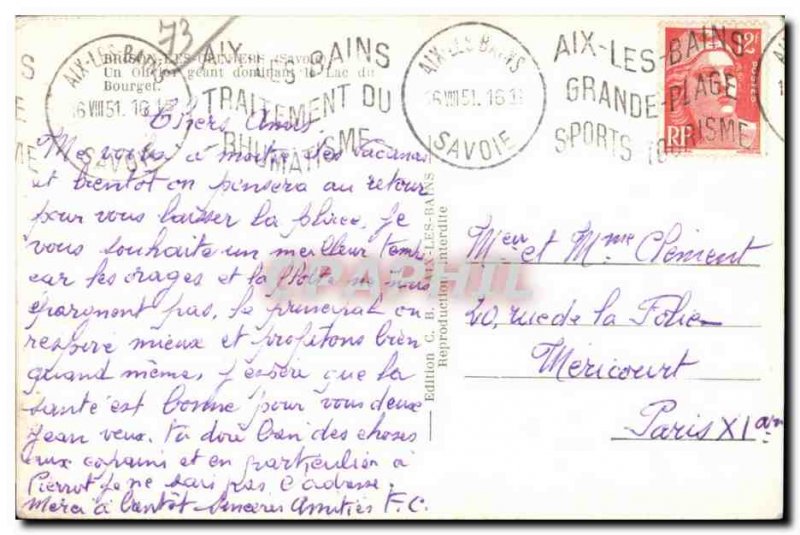 73
BRISON-LES-OLIVIERS (Savoie)
Un Olivier géant dominant le Lac du
Bourget.
AIX-LES-BAINS
16 VIII 51. 16 15
SAVOIE
AIX-LES-BAINS
TRAITEMENT DU
RHUMATISME
AIX-LES-BAINS
6 VIII 51. 16 15
SAVOIE
AIX-LES-BAINS
GRANDE-PLAGE
SPORTS TOURISME
12f
POSTES
RF
Chers Amis
Me voilà à moitié des vacances
et bientôt on pensera au retour
pour vous laisser la place, je
vous souhaite un meilleur temps
car les orages et la flotte ne nous
épargnent pas, le principal on
respire mieux et profitons bien
quand même, j'espère que la
santé est bonne pour vous deux
Jean veux. tu dire bien des choses
aux copains et en particulier à
Pierrot je ne sais pas l'adresse.
Merci à bientôt Sincères Amitiés F.C.
Edition C. B. AIX-LES-BAINS
Reproduction interdite
Meur et Mme Clément
20, rue de la Folie
Méricourt
Paris XIar
APHIL